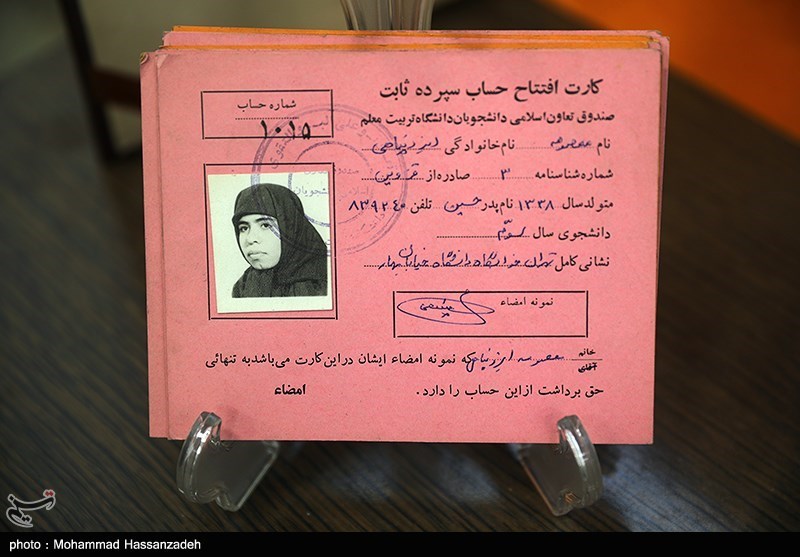 کارت افتتاح حساب سپرده ثابت
صندوق تعاون اسلامی دانشجویان دانشگاه تربیت معلم
شماره حساب
۱۰۱۵
نام معصومه نام خانوادگی
شماره شناسنامه ۳ صادره از قزوین
متولد سال ۱۳۳۸ نام پدر حسین تلفن ۸۳۹۲۴۰
دانشجوی سال سوم
نشانی کامل تهران دانشگاه خیابان بهار
نمونه امضاء
خانم
آقای
معصومه که نمونه امضاء ایشان در این کارت می‌باشد به تنهائی
حق برداشت از این حساب را دارد.
امضاء
تسنیم
photo : Mohammad Hassanzadeh